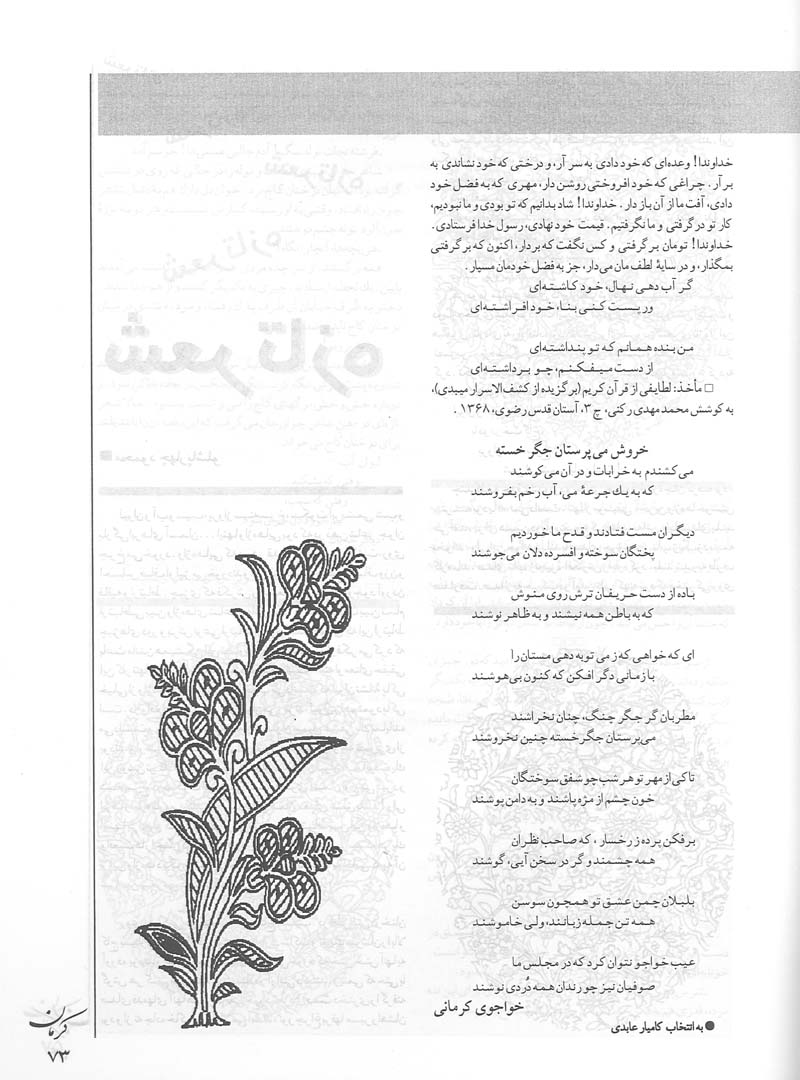 خداوندا! وعده‌ای که خود دادی به سر آر، و درختی که خود نشاندی به
بر آر. چراغی که خود افروختی روشن دار، مهری که به فضل خود
دادی، آفت ما از آن باز دار. خداوندا! شاد بدانیم که تو بودی و ما نبودیم،
کار تو درگرفتی و ما نگرفتیم. قیمت خود نهادی، رسول خدا فرستادی.
خداوندا! تومان برگرفتی و کس نگفت که بردار، اکنون که برگرفتی
بمگذار، و در سایهٔ لطف مان می‌دار، جز به فضل خودمان مسپار.
گر آب دهی نهال، خود کاشته‌ای
ور پست کنی بنا، خود افراشته‌ای
من بنده همانم که تو پنداشته‌ای
از دست میفکنم، چو برداشته‌ای
□ مأخذ: لطایفی از قرآن کریم (برگزیده از کشف‌الاسرار میبدی)،
به کوشش محمد مهدی رکنی، چ ۳، آستان قدس رضوی، ۱۳۶۸.
خروش می‌پرستان جگر خسته
می‌کشندم به خرابات و در آن می‌کوشند
که به یك جرعهٔ می، آب رخم بفروشند
دیگران مست فتادند و قدح ما خوردیم
پختگان سوخته و افسرده دلان می‌جوشند
باده از دست حریفان ترش روی منوش
که به باطن همه نیشند و به ظاهر نوشند
ای که خواهی که ز می توبه دهی مستان را
با زمانی دگر افکن که کنون بی‌هوشند
مطربان گر جگر چنگ، چنان نخراشند
می‌پرستان جگرخسته چنین نخروشند
تا کی از مهر تو هر شب چو شفق سوختگان
خون چشم از مژه پاشند و به دامن پوشند
برفکن پرده ز رخسار، که صاحب نظران
همه چشمند و گر در سخن آیی، گوشند
بلبلان چمن عشق تو همچون سوسن
همه تن جمله زبانند، ولی خاموشند
عیب خواجو نتوان کرد که در مجلس ما
صوفیان نیز چو رندان همه دُردی نوشند
خواجوی کرمانی
● به انتخاب کامیار عابدی
کرمان
۷۳